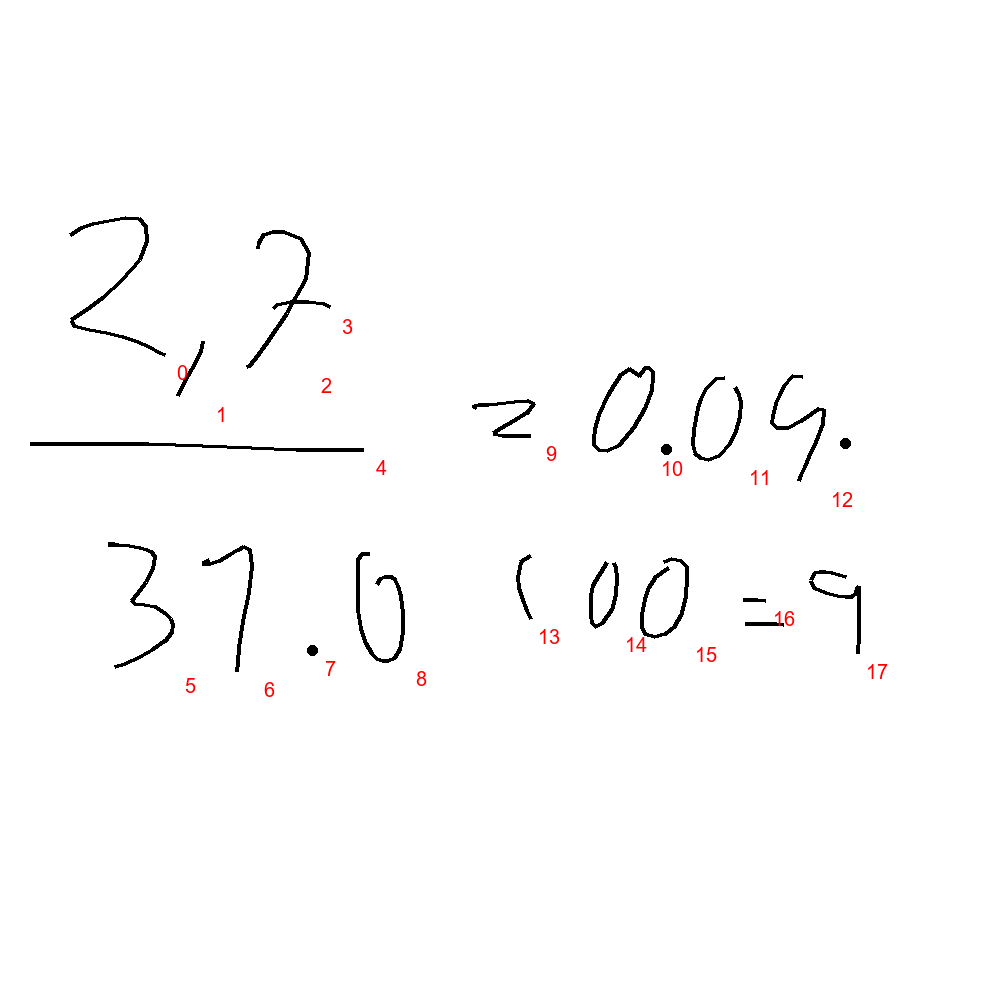 2,7
= 0.09.
31.0
100 = 9
0
1
2
3
4
5
6
7
8
9
10
11
12
13
14
15
16
17